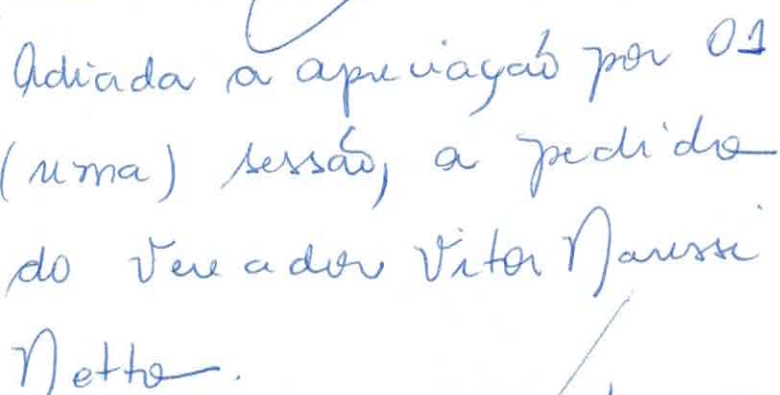 Adiada a apreciação por 01
(uma) sessão, a pedido
do Vereador Vitor Naressi
Netto.